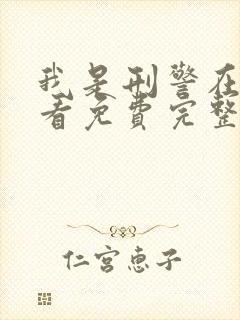 我是刑警在
看免费完整
仁宫惠子